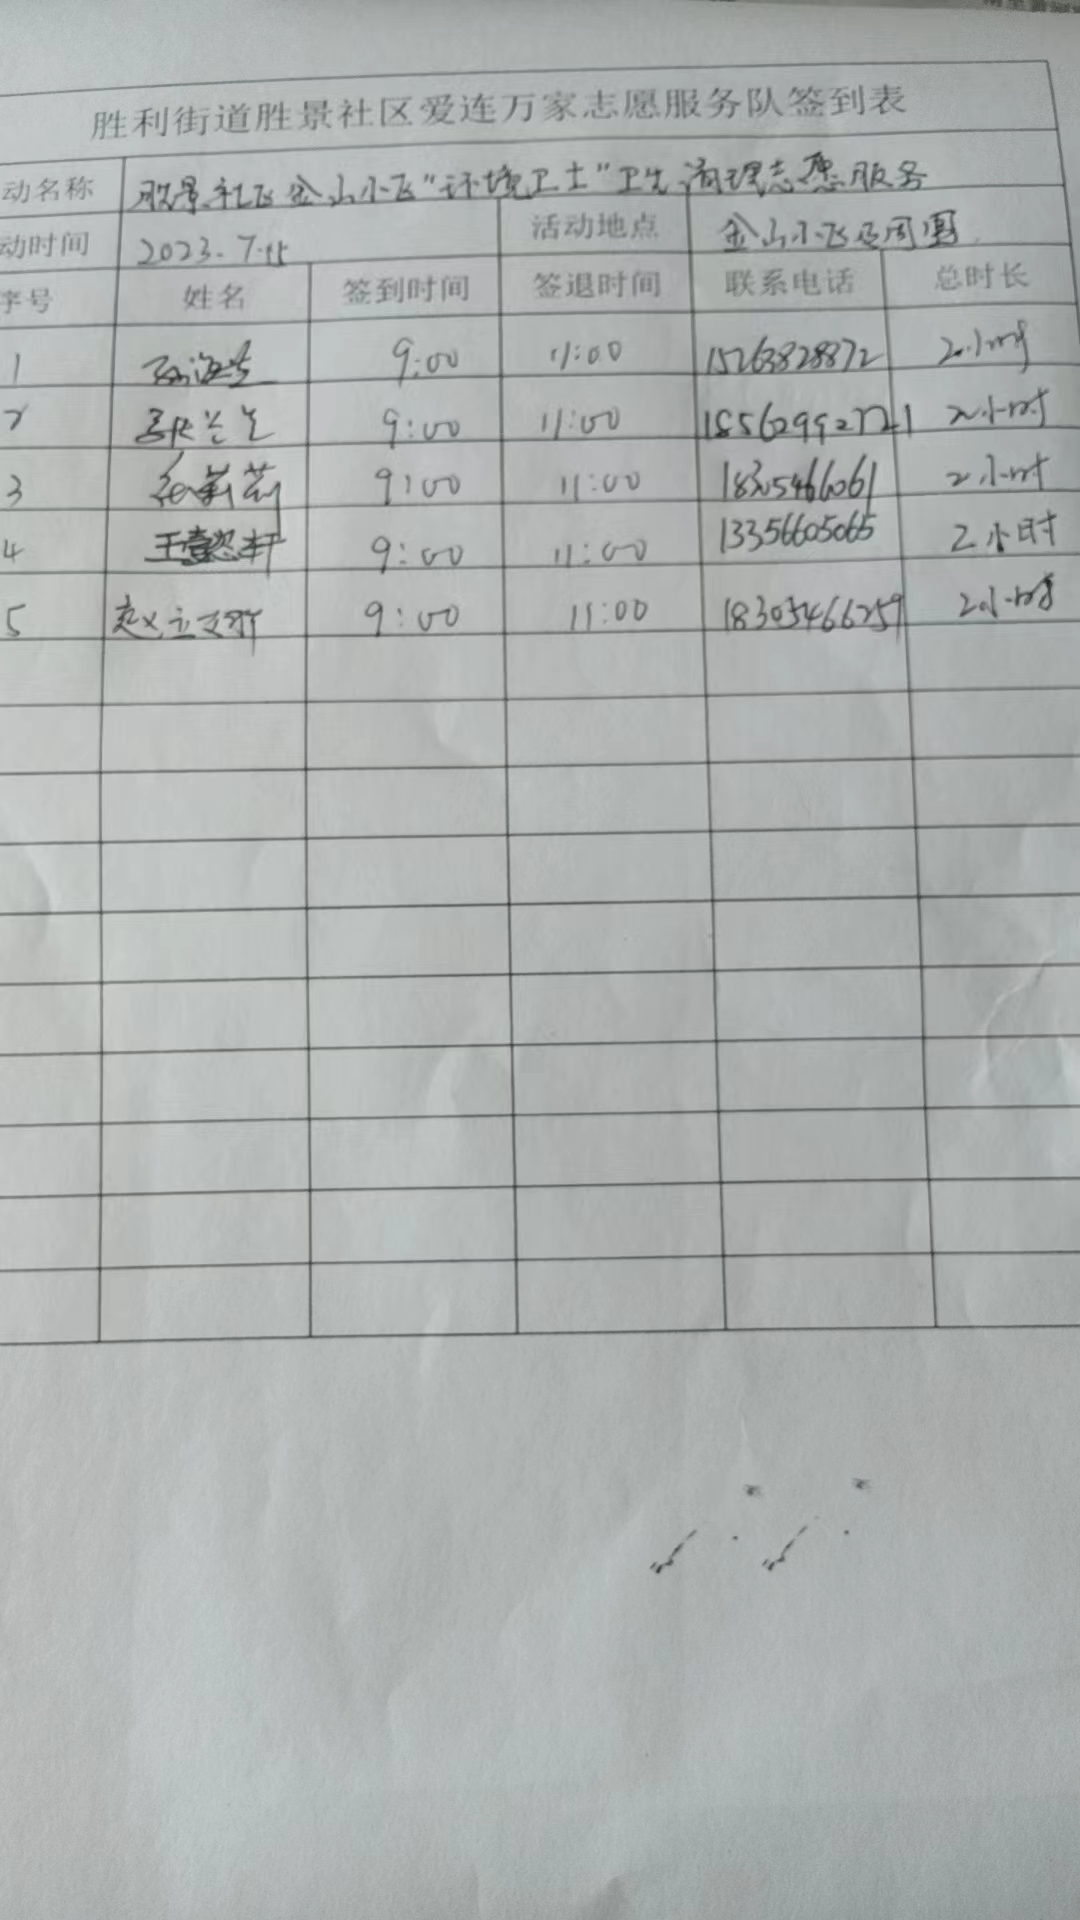 胜利街道胜景社区爱连万家志愿服务队签到表
动名称 胜景社区金山小区“环境卫士”卫生清理志愿服务
动时间 2023.7.15 活动地点 金山小区及周围
序号 姓名 签到时间 签退时间 联系电话 总时长
1 9:00 11:00 15263828872 2小时
2 9:00 11:00 18562992721 2小时
3 9:00 11:00 18305466061 2小时
4 王 轩 9:00 11:00 13356605065 2小时
5 赵 9:00 11:00 18305466259 2小时